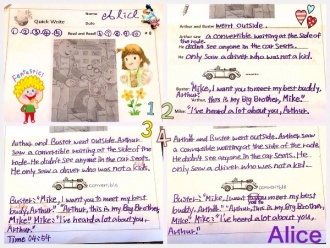 Quick Write
Name Alice
Date
① ② ③ ④ ⑤
Read and Reread
Fantastic!
Arthur and Buster went outside.
Arthur saw a convertible waiting at the side of the
road.
He didn't see anyone in the car seats.
He only saw a driver who was not a kid.
Buster: "Mike, I want you to meet my best buddy,
Arthur."
"Arthur, this is my Big Brother,
Mike."
Mike: "I've heard a lot about you, Arthur."
1 2
3 4
Arthur and Buster went outside. Arthur
saw a convertible waiting at the side of the
road. He didn't see anyone in the car seats.
He only saw a driver who was not a kid.
convertible
Buster: "Mike, I want you to meet my best
buddy, Arthur." "Arthur, this is my Big Brother,
Mike." Mike: "I've heard a lot about you,
Arthur."
Time 04:54
Arthur and Buster went outside. Arthur saw
a convertible waiting at the side of the road.
He didn't see anyone in the car seats.
He only saw a driver who was not a kid.
convertible
Buster: "Mike, I want you to meet my best
buddy, Arthur." "Arthur, this is my Big Brother,
Mike." Mike: "I've heard a lot about you,
Arthur."
Alice